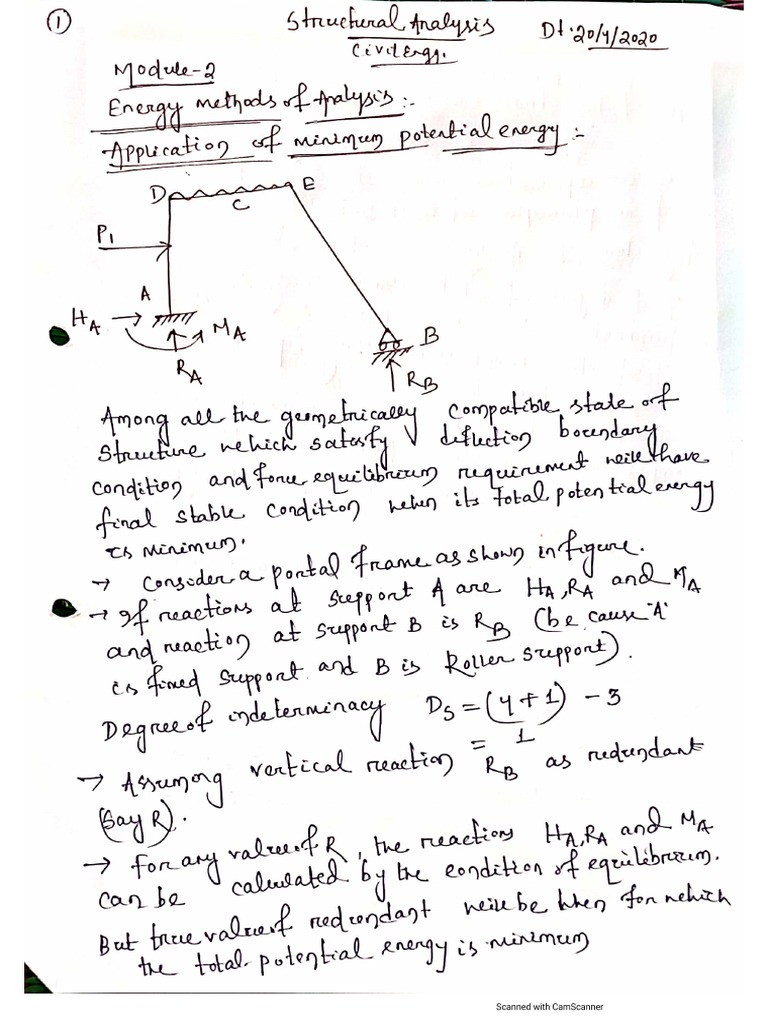 1
Structural Analysis
Dt. 20/4/2020
Civil Engg.
Module-2
Energy methods of Analysis:-
Application of minimum potential energy:-
D E
C
P1
A
HA MA
B
RA
RB
Among all the geometrically compatible state of
structure which satisfy deflection boundary
condition and force equilibrium requirement will have
final stable condition when its total potential energy
is minimum.
→ Consider a portal frame as shown in figure.
→ If reactions at support A are HA, RA and MA
and reaction at support B is RB (because 'A'
is fixed support and B is Roller support).
Degree of indeterminacy DS = (4+1) - 3
= 1
→ Assuming vertical reaction RB as redundant
(Say R).
→ for any value of R, the reactions HA, RA and MA
can be calculated by the condition of equilibrium.
But true value of redundant will be when for which
the total potential energy is minimum
Scanned with CamScanner